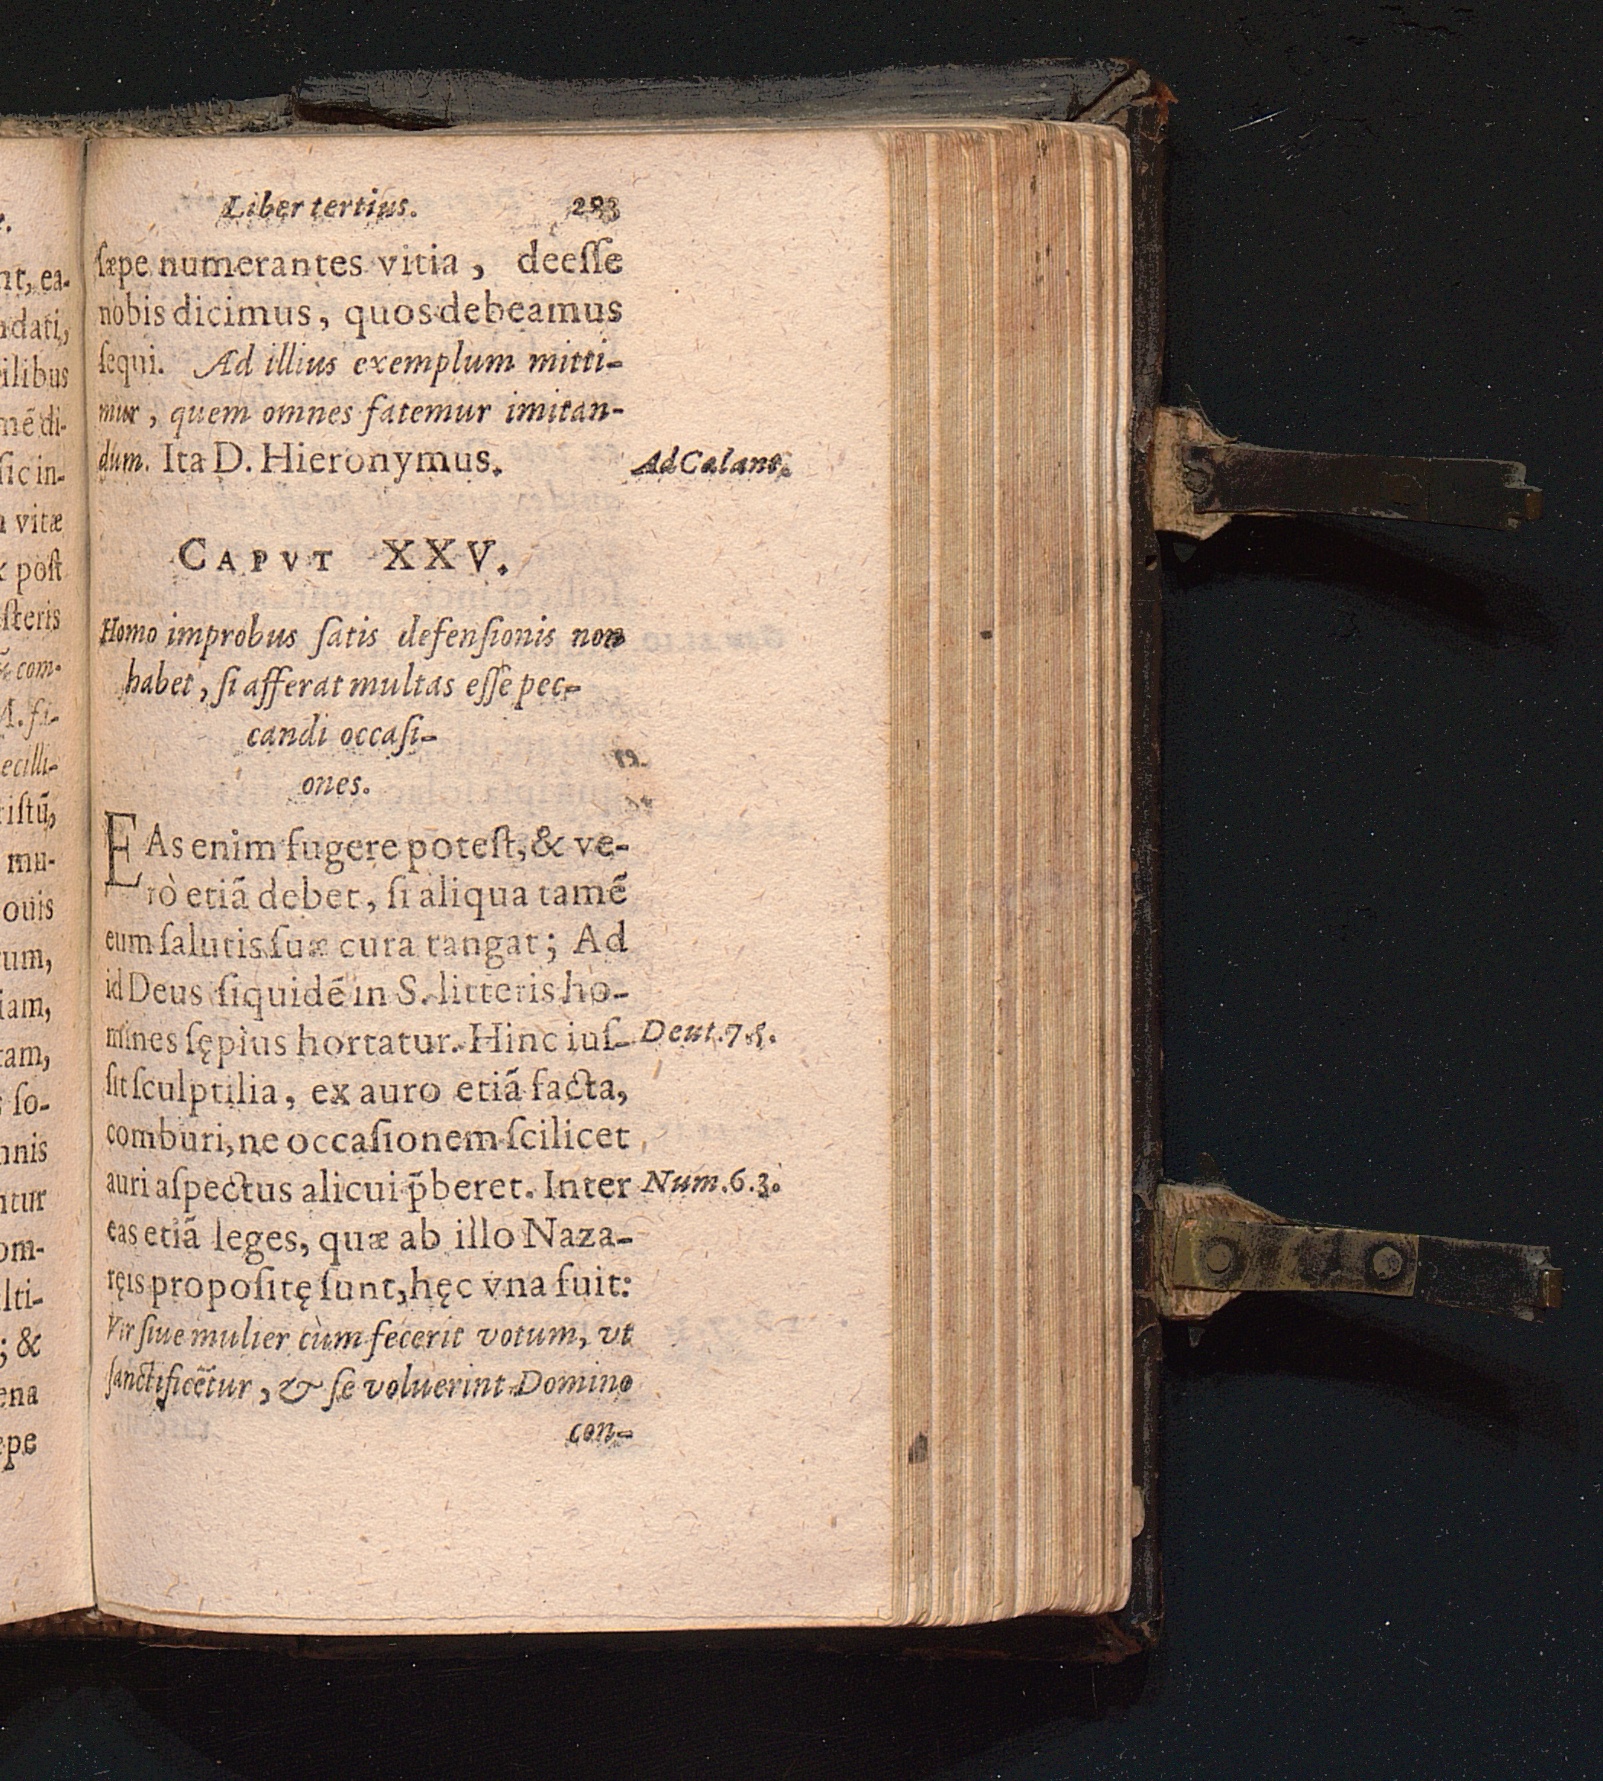 Liber tertius. 293
ſæpe numerantes vitia, deeſſe
nobis dicimus, quos debeamus
ſequi. Ad illius exemplum mitti-
mur, quem omnes fatemur imitan-
dum. Ita D. Hieronymus. Ad Calant.
CAPVT XXV.
Homo improbus ſatis defenſionis non
habet, ſi afferat multas eſſe pec-
candi occaſi-
ones.
EAs enim fugere poteſt, & ve-
rò etiā debet, ſi aliqua tamē
eum ſalutis ſuæ cura tangat; Ad
id Deus ſiquidē in S. litteris ho-
mines ſępius hortatur. Hinc iuſ- Deut. 7. 5.
ſit ſculptilia, ex auro etiā facta,
comburi, ne occaſionem ſcilicet
auri aſpectus alicui p̄beret. Inter Num. 6. 3.
eas etiā leges, quæ ab illo Naza-
ręis propoſitę ſunt, hęc vna fuit:
Vir ſiue mulier cùm fecerit votum, vt
ſanctificētur, & ſe voluerint Domino
con-
nt, ea-
ndati,
ilibus
mē di-
ſic in-
vitæ
poſt
ſteris
com-
ecilli-
iſtū,
mu-
ouis
um,
iam,
tam,
ſo-
nnis
ntur
om-
lti-
; &
ena
epe